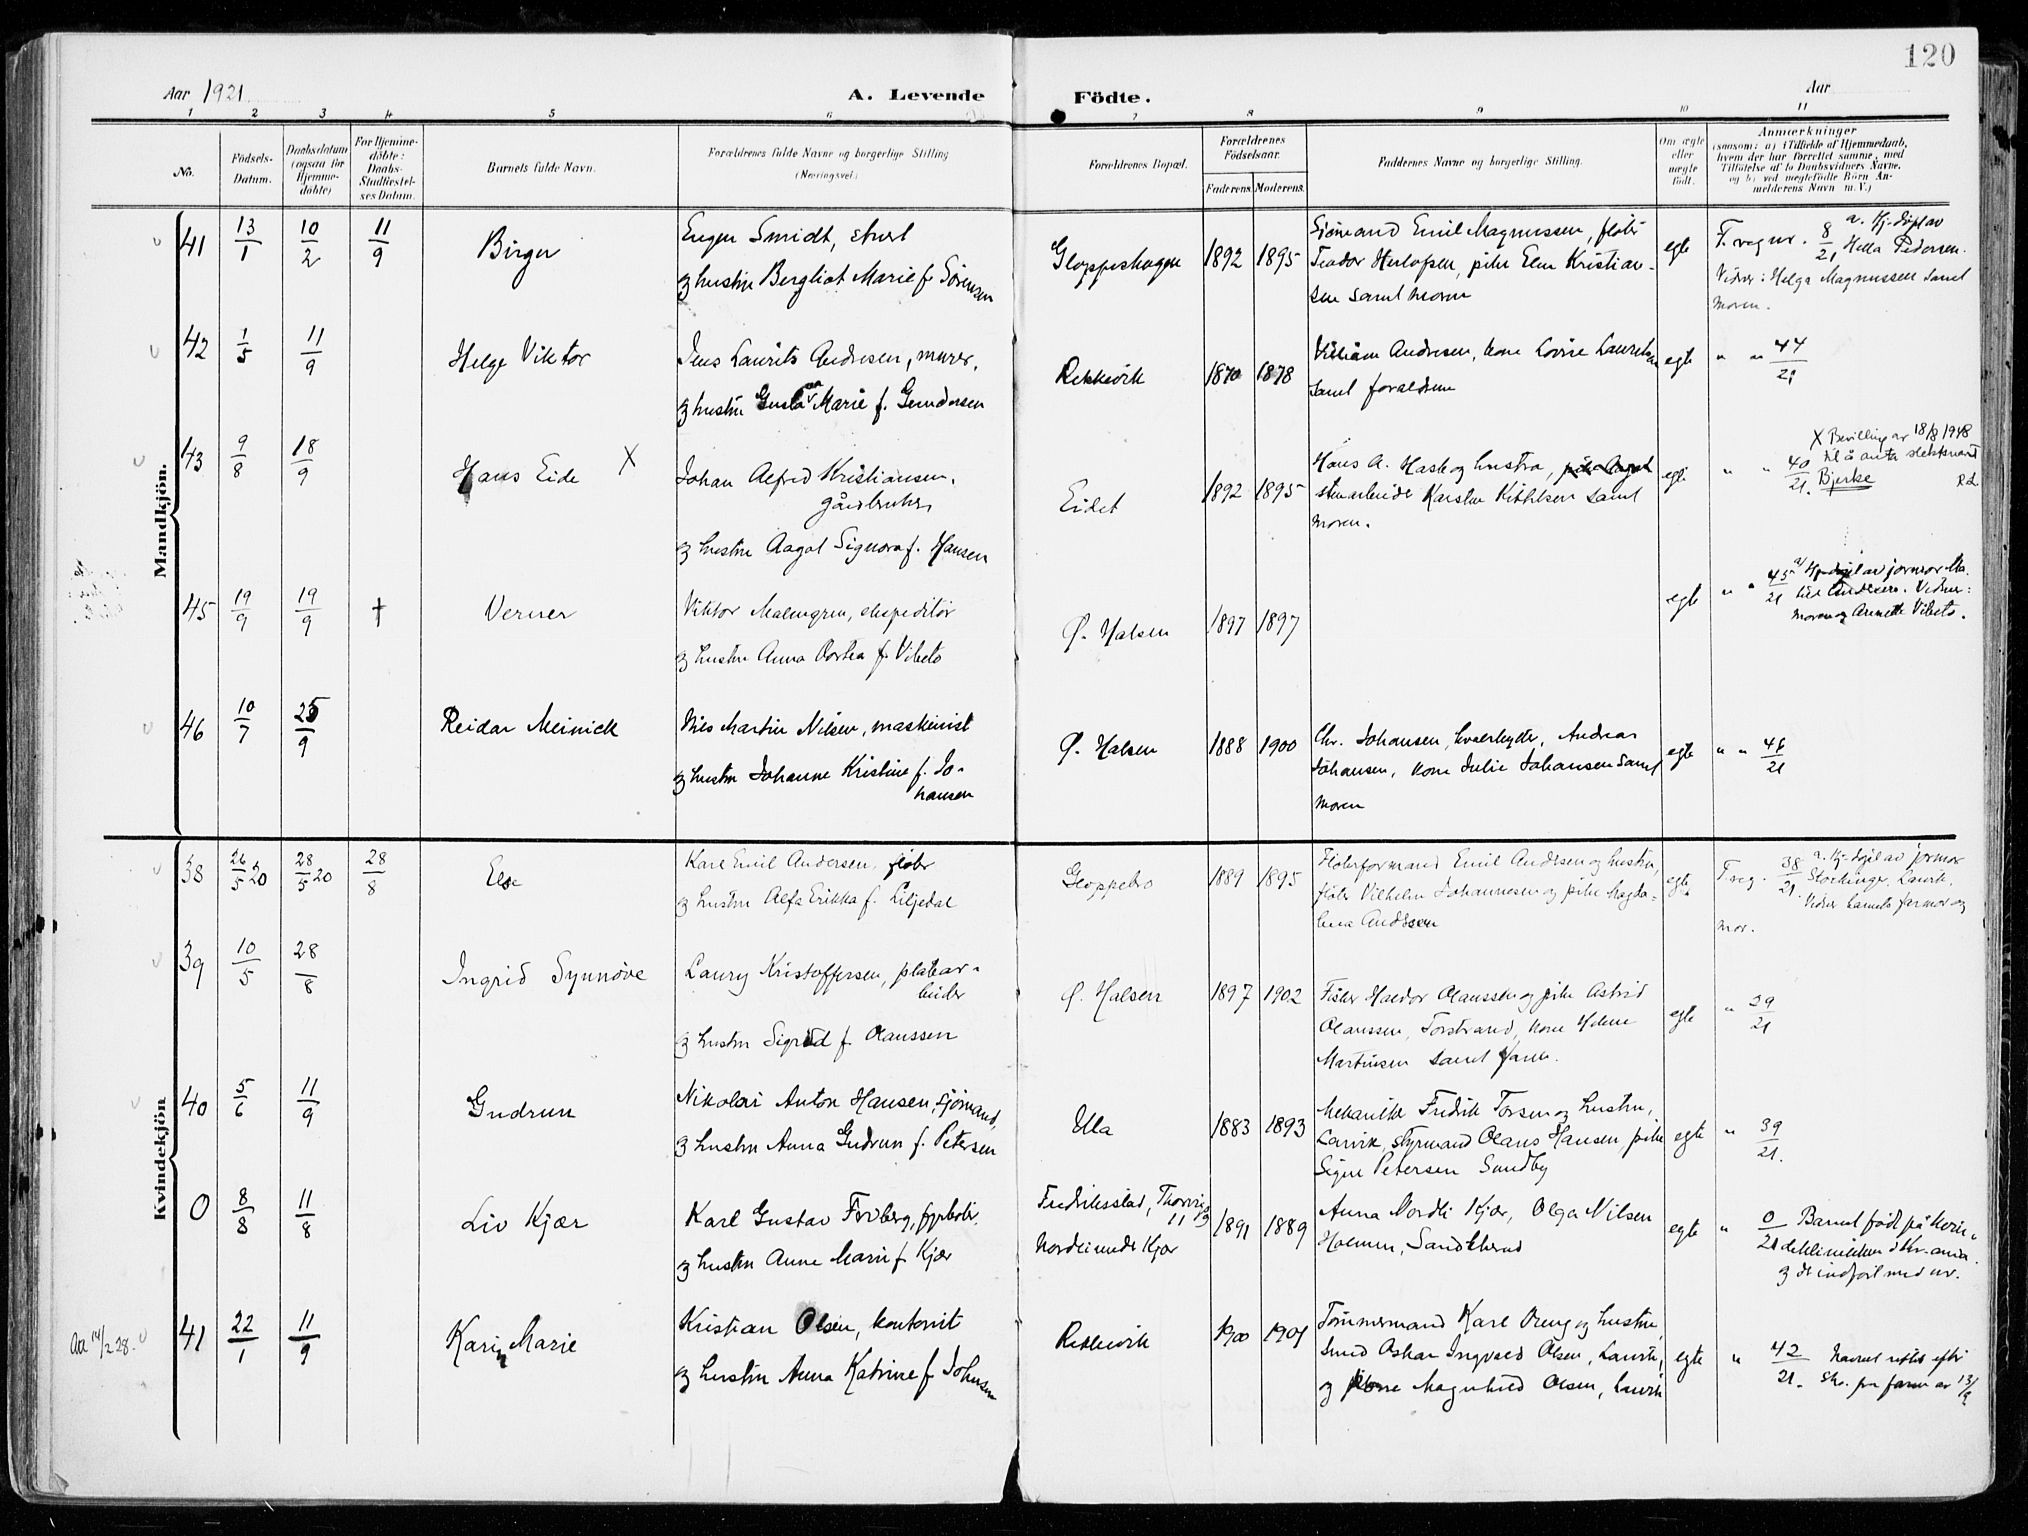 120
Aar 1921
A. Levende Födte.
Aar
1 2 3 4 5 6 7 8 9 10 11
No.
Födsels-Datum.
Daabsdatum (ogsaa for Hjemme-döbte)
For Hjemme-döbte: Daabs-Stadfæstelses Datum.
Barnets fulde Navn.
Forældrenes fulde Navne og borgerlige Stilling
(Næringsvei)
Forældrenes Bopæl.
Forældrenes Födselsaar.
Faderens. Moderens.
Faddernes Navne og borgerlige Stilling.
Om ægte eller uægte födt.
Anmærkninger
(saasom: a) Tilfælde af Hjemmedaab, hvem der har forrettet samme, med Tilföielse af to Daabsvidners Navne, og b) ved uægtefödte Börn Anmelderens Navn m. V.)
Mandkjön.
41 13/1 10/2 11/9 Birger
Eugen Smidt,
og hustru Bergliot Marie f. Sörensen
Gloppeskogen 1892 1895
Sjömand Emil Magnussen, fløter
Teodor Herlofsen, pike Elen Kristian-
sen samt moren
egte T. reg nr. 8/21 a. Hj. döpt av
Hella Pedersen.
Vidner: Helga Magnussen samt
moren.
42 1/5 11/9 Helge Viktor
Jens Laurits Andresen, murer,
og hustru Gustava Marie f. Gundersen
Rekkevik 1870 1878
Viliam Andresen, kone Lovise Lauretsen
samt forældrene
egte " " 44/21
43 9/8 18/9 Hans Eide X
Johan Alfred Kristiansen,
gårdbruker,
og hustru Aagot Signora f. Hansen
Eidet 1892 1895
Hans A. Hask og hustru, pike Aagot
stenarbeider Karsten Kittilsen samt
moren.
egte " " 40/21.
X Bevilling av 18/8 1948
til å anta slektsnavnet
Bjerke
45 19/9 19/9 † Verner
Viktor Malmgren, ekspeditör
og hustru Anna Dortea f. Vibeto
Ø. Halsen 1897 1897
egte " " 45/21 a/ Hj. döpt av jormor Ma-
tilde Andersen. Vidner:
moren og Annette Vibeto.
46 10/7 25/9 Reidar Meinick
Nils Martin Nilsen, maskinist
og hustru Johanne Kristine f. Jo-
hansen
Ø. Halsen 1888 1900
Chr. Johansen, Andreas
Johansen, kone Julie Johansen samt
moren
egte " " 46/21
Kvindekjön
38 26/5 20 28/5 20 28/8 Else
Karl Emil Andersen, fløter
og hustru Alfa Erikka f. Liljedal
Gloppebo 1889 1895
Fløterformand Emil Andersen og hustru,
fløter Vilhelm Johannesen og pike Magda-
lena Andersen
egte T reg. 38/21. a. Hj. döpt av jormor
Stockinger, Larvik.
Vidner barnets farmor og
mor.
39 10/5 28/8 Ingrid Synnöve
Laury Kristoffersen, platear-
beider
og hustru Sigrid f. Olaussen
Ø. Halsen 1897 1902
Fisker Haldor Olaussen og pike Astrid
Olaussen, Torstrand, kone Helene
Martinsen samt faren.
egte " 39/21
40 5/6 11/9 Gudrun
Nikolai Anton Hansen, sjömand,
og hustru Anna Gudrun f. Petersen
Ula 1883 1893
Mekaniker Fredrik Torsen og hustru,
Larvik, styrmand Olaus Hansen, pike
Signe Petersen Sundby
egte " 39/21.
0 8/8 11/8 Liv Kjær
Karl Gustav Forberg, fyrböter,
og hustru Anne Marie f. Kjær
Fredriksstad,
Nordli under Kjær 1891 1889
Anna Nordli Kjær, Olga Nilsen
Holmen, Sandeherred
egte " 0/21 Barnet födt på kvin-
deklinikken i Kr.ania
og der indfört med nr.
Aa 14/2 28.
41 22/1 11/9 Karin Marie
Kristian Olsen, kontorist
og hustru Anna Katrine f. Johnsen
Rekkevik 1900 1901
Tömmermand Karl Oreng og hustru,
Smed Oskar Ingvald Olsen, Larvik,
og kone Magnhild Olsen, Larvik
egte " 42/21. Navnet rettet efter
skr. fra faren av 13/9